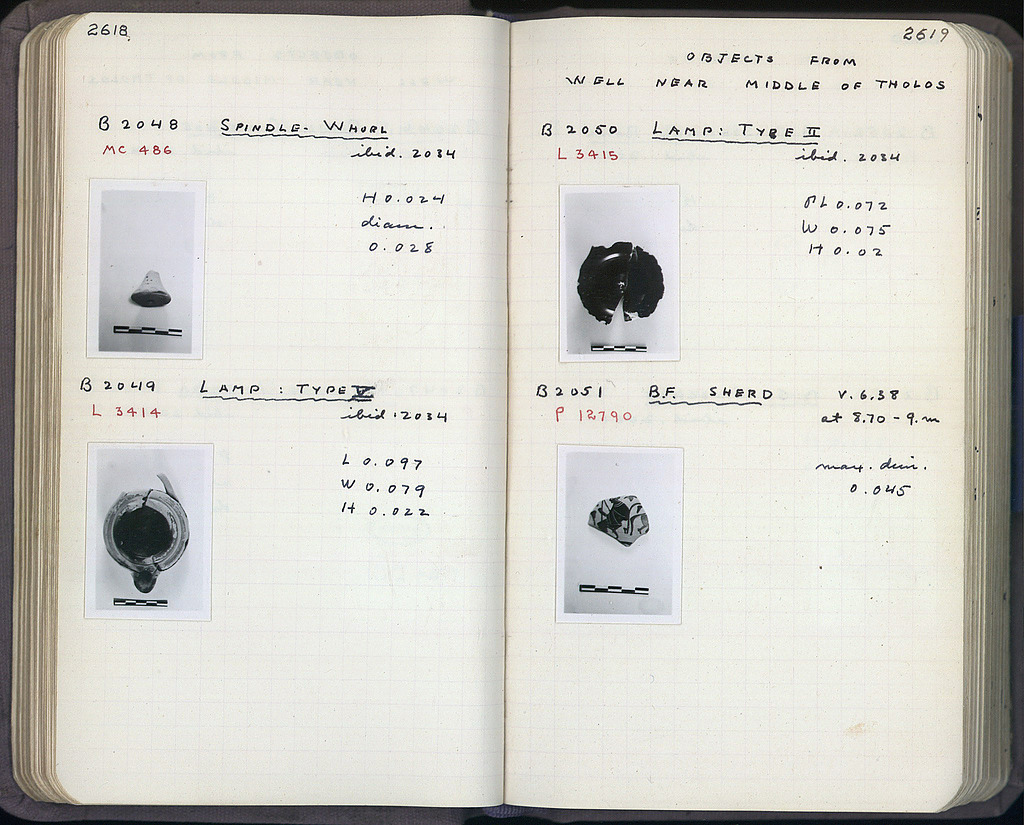 2618
B 2048 SPINDLE-WHORL
MC 486 ibid. 2034
H 0.024
diam.
0.028
B 2049 LAMP: TYPE V
L 3414 ibid. 2034
L 0.097
W 0.079
H 0.022
2619
OBJECTS FROM
WELL NEAR MIDDLE OF THOLOS
B 2050 LAMP: TYPE II
L 3415 ibid. 2034
PL 0.072
W 0.075
H 0.02
B 2051 B.F. SHERD V.6.38
P 12790 at 8.70-9.m
max. dim.
0.045